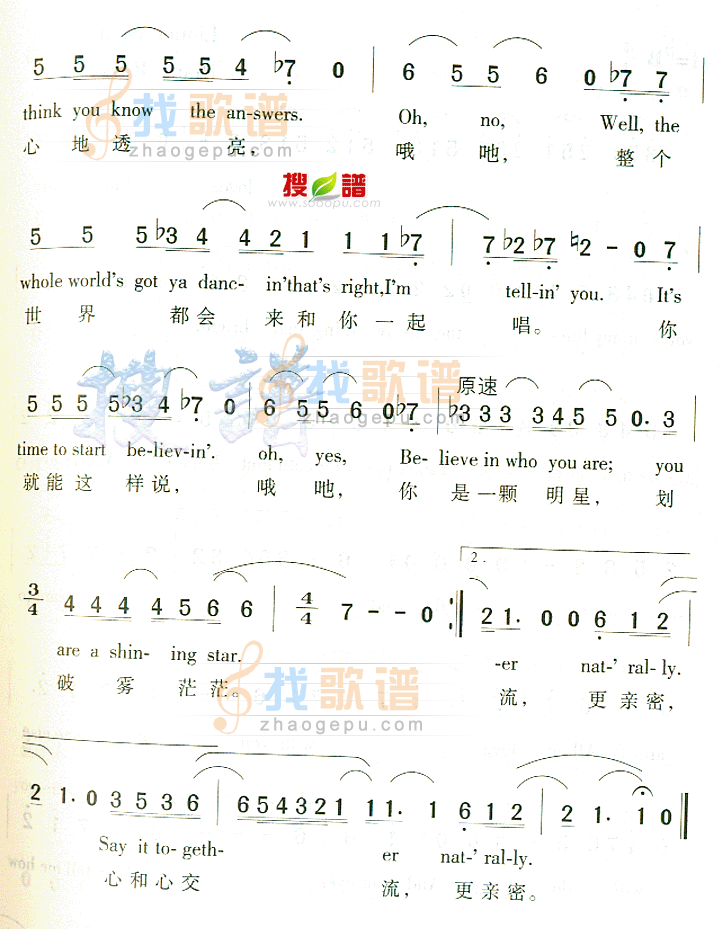 5 5 5 5 5 4 ♭7 0 | 6 5 5 6 0 ♭7 7
think you know the an-swers. Oh, no, Well, the
心 地 透 亮, 哦 吔, 整 个
找歌谱
zhaogepu.com
搜 譜
www.sooopu.com
5 5 5 ♭3 4 4 2 1 1 1 ♭7 | 7 ♭2 ♭7 ♮2 - 0 7
whole world's got ya danc- in'that's right,I'm tell-in' you. It's
世 界 都 会 来 和 你 一 起 唱。 你
搜 譜
找歌谱
zhaogepu.com
原速
5 5 5 5 ♭3 4 ♭7 0 | 6 5 5 6 0 ♭7 | ♭3 3 3 3 4 5 5 0. 3
time to start be-liev-in'. oh, yes, Be- lieve in who you are; you
就 能 这 样 说, 哦 吔, 你 是 一 颗 明 星, 划
2.
3/4 4 4 4 4 5 6 6 | 4/4 7 - - 0 :‖ 2 1. 0 0 6 1 2
are a shin- ing star. -er nat-' ral-ly.
破 雾 茫 茫。 流, 更 亲 密,
找歌谱
zhaogepu.com
2 1. 0 3 5 3 6 | 6 5 4 3 2 1 1 1. 1 6 1 2 | 2 1. 1 0
Say it to-geth- er nat-' ral-ly.
心 和 心 交 流, 更 亲 密。